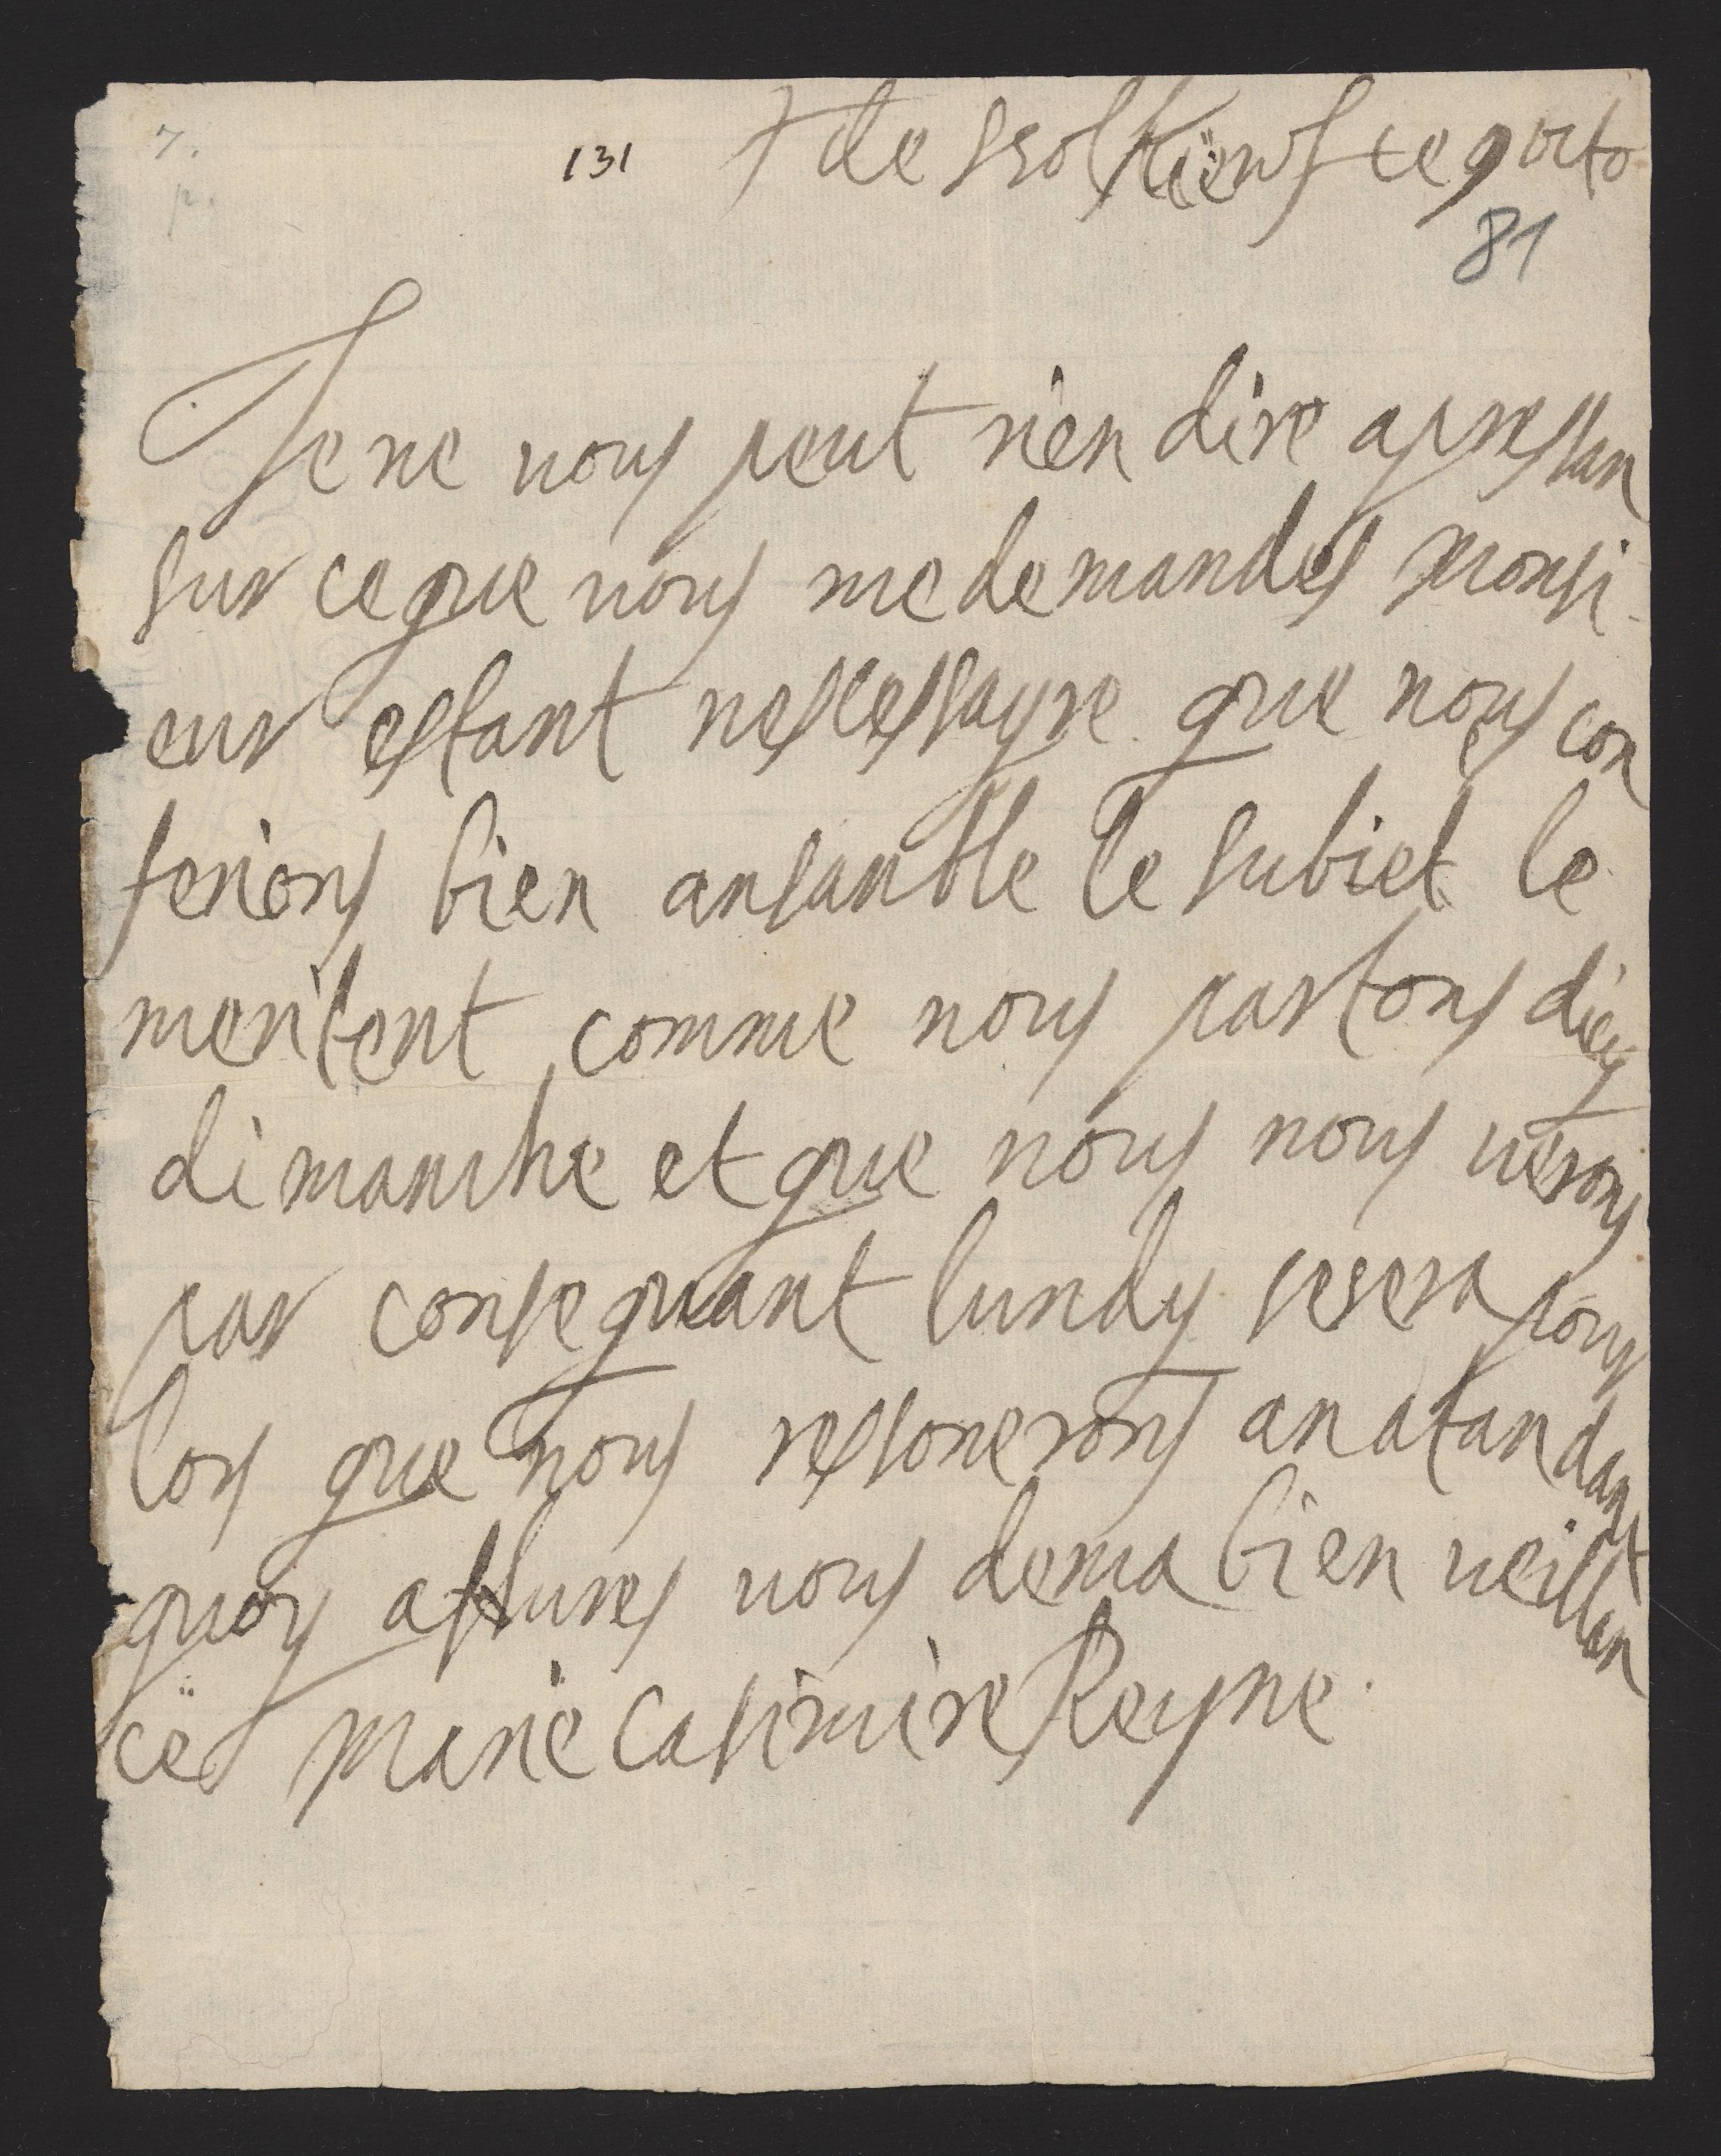 7.
131
de ssolkiews ce 9 octo
81
Je ne vous peut rien dire apressan
sur ce que vous me demandes monsi
eur estant nessessayre que nous con
ferions bien ansanble le subiet le
meritent comme nous partons dieu
dimanche et que nous nous verons
par consequant lundy se sera pour
lors que nous ressonerons an atandant
quoy assures vous de ma bien veillan
ce Marie Casimire Reyne.